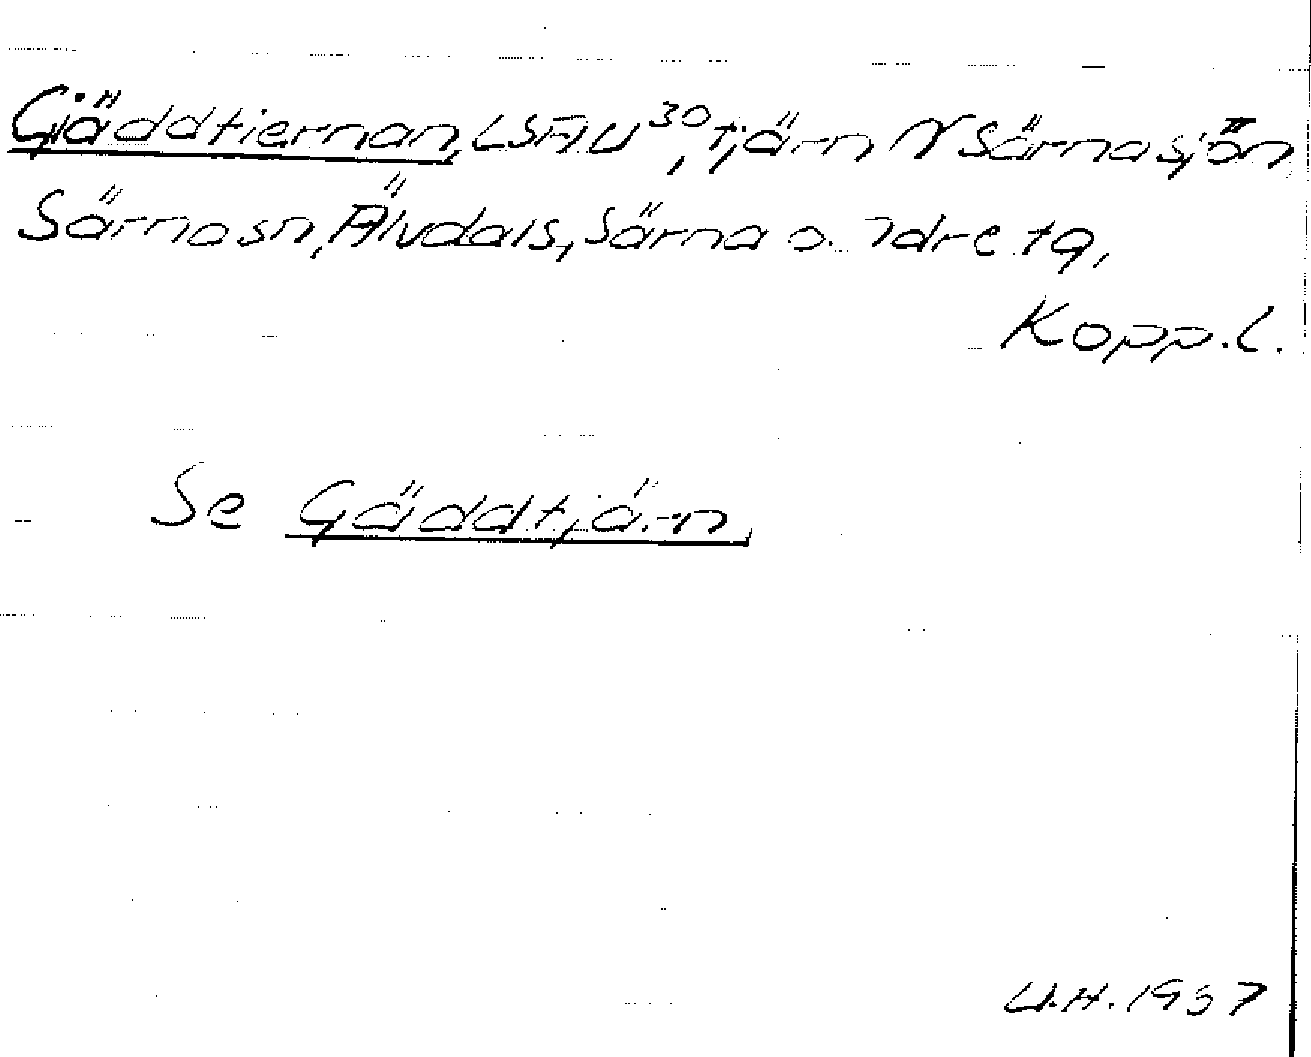 Gjäddtiernan, LSA U³⁰, tjärn N Särnasjön
Särna sn, Älvdals, Särna o. Idre tg,
Kopp. l.
Se Gäddtjärn
U.H. 1957